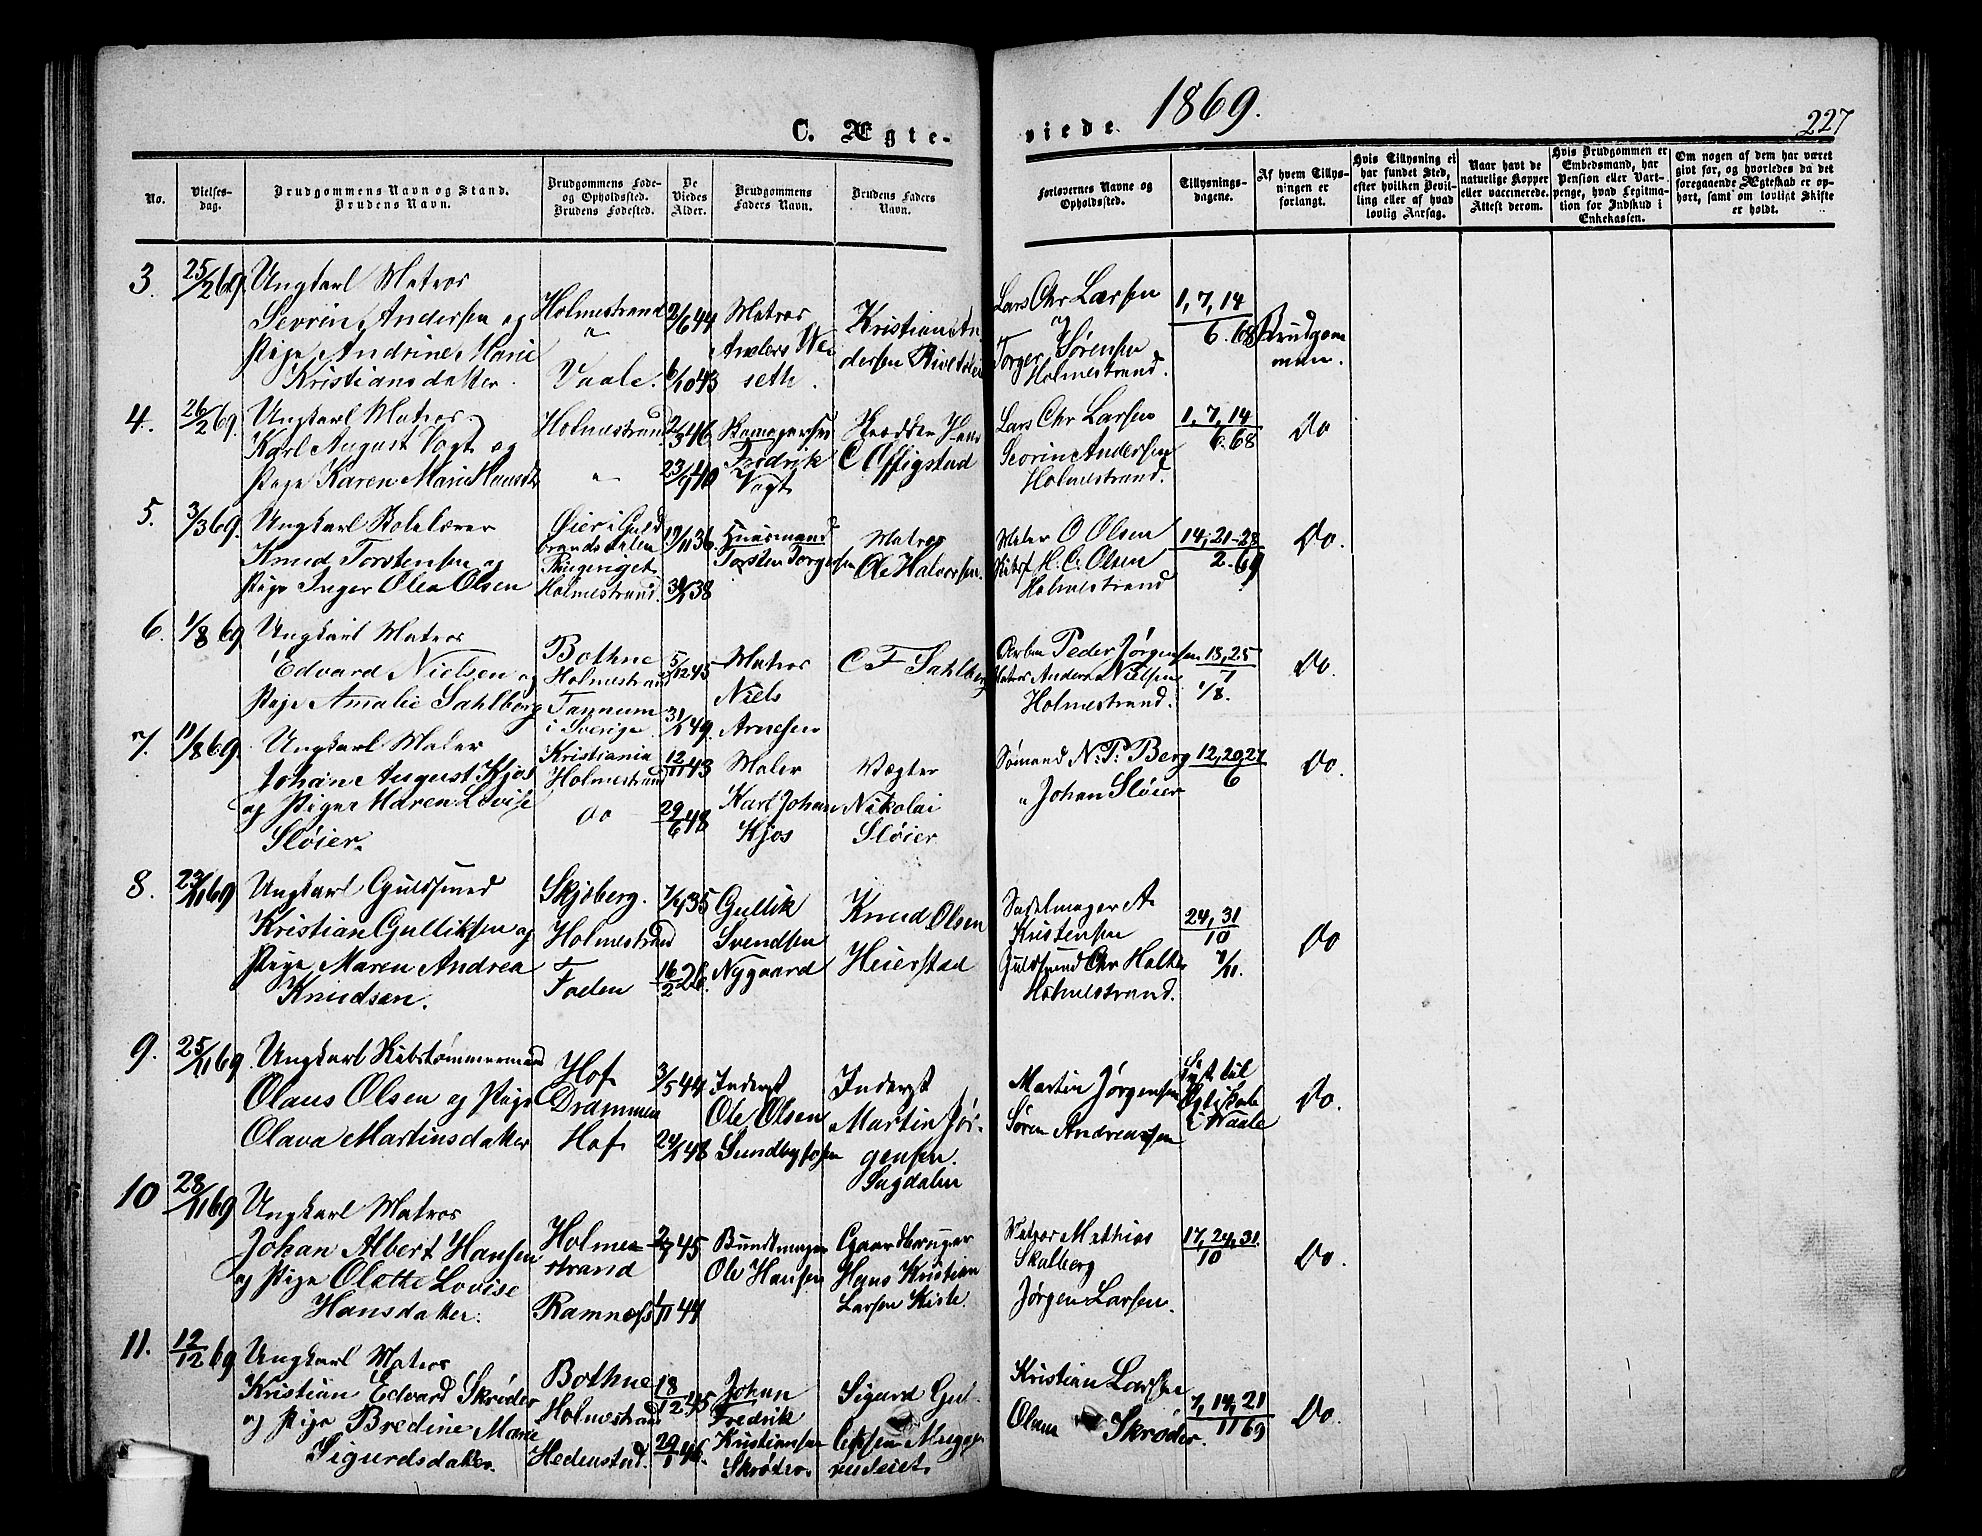 1869.
227
C. Ægte-
viede
No.
Vielses-
dag.
Brudgommens Navn og Stand.
Brudens Navn.
Brudgommens Føde-
og Opholdssted.
Brudens Fødested.
De
Viedes
Alder.
Brudgommens
Faders Navn.
Brudens Faders
Navn.
Forlovernes Navne og
Opholdssted.
Tillysnings-
dagene.
Af hvem Tillys-
ningen er
forlangt.
Hvis Tillysning ei
har fundet Sted,
efter hvilken Bevil-
ling eller af hvad
lovlig Aarsag.
Naar havt de
naturlige Kopper
eller vaccinerede.
Attest derom.
Hvis Brudgommen er
Embedsmand, har
Pension eller Vart-
penge, hvad Legitima-
tion for Indskud i
Enkekassen.
Om nogen af dem har været
gift før, og hvorledes da det
foregaaende Ægteskab er op-
hørt, samt om lovligt Skifte
er holdt.
3. 25/2 69.
Ungkarl Matros
Sevrin Andersen og
Pige Andrine Marie
Kristiansdatter.
Holmestrand
"
Vaale.
2/6 44
6/10 43
Matros
Anders We-
seth.
Kristian An
dersen
Lars Chr Larsen
og
Torger Sørensen
Holmestrand.
1, 7, 14
6. 68
Brudgom
men.
4. 26/2 69.
Ungkarl Matros
Karl August Vogt og
Pige Karen Marie
Holmestrand
"
2/3 46
23/9 40
Fredrik
Vogt
Hans
C
Lars Chr Larsen
Sevrin Andersen
Holmestrand.
1, 7, 14
6. 68
Do
5. 3/3 69.
Ungkarl Skolelærer
Knud Torstensen og
Pige Inger Olea Olsen
Øier i Guld
brandsdalen
Holmestrand.
/11 36.
38
Huusmand
Torsten Torgersen
Matros
Ole Halvorsen.
Maler O Olsen
H. C. Olsen
Holmestrand
14, 21-28
2-69
Do.
6. 1/8 69
Ungkarl Matros
Edvard Nielsen og
Pige Amalie Sahlberg
Bothne
Holmestrand
Tannum
i Sverige.
5/12 45
49.
Matros
Niels
Arnesen
C F Sahlberg
Peder Jørgensen
Anders Nielsen
Holmestrand.
18, 25
7
1/8.
Do.
7. 11/8 69.
Ungkarl Maler
Johan August Kjos
og Pige Maren Lovise
Sløier.
Kristiania
Holmestrand
do
12/11 43
29/6 48
Maler
Karl Johan
Kjos
Vægter
Nikolai
Sløier
Sømand N. P. Berg
" Johan Sløier
12, 20, 27
6
Do.
8. 23/11 69
Ungkarl Guldsmed
Kristian Gulliksen og
Pige Maren Andrea
Knudsen.
Skjeberg.
Holmestrand
Foden
35
16/2 26.
Gullik
Svendsen
Nygaard
Knud Olsen
Heierstad
Sadelmager A.
Kristensen
Guldsmed Chr Holter
Holmestrand.
24, 31
10
7/11.
Do
9. 25/11 69
Ungkarl Skibstømmermand
Olaus Olsen og Pige
Olava Martinsdatter
Hof
Drammen
Hof
3/5 44
24/ 48
Inderst
Ole Olsen
Sundbyfossen
Inderst
Martin Jør-
gensen.
Sagdalen
Martin Jørgensen
Søren Andreassen
Lyst til
i Vaale
Do.
10 28/11 69
Ungkarl Matros
Johan Albert Hansen
og Pige Olette Lovise
Hansdatter.
Holme
strand
Ramnæs
45
/11 44
Bundtmager
Ole Hansen
Gaardbruger
Hans Kristian
Larsen
Matros Mathias
Skalberg
Jørgen Larsen.
17, 24, 31.
10
Do.
11. 12/12 69
Ungkarl Matros
Kristian Edvard Skrøder
og Pige Bredine Marie
Sigurdsdatter.
Bothne
Holmestrand
Hedenstad.
18/12 45
29/1 46.
Johan
Fredrik
Kristiansen
Skrøder.
Sigurd Gul-
liksen
Kristian Larsen
Olaus Skrøder.
7, 14, 21
11 69
Do.